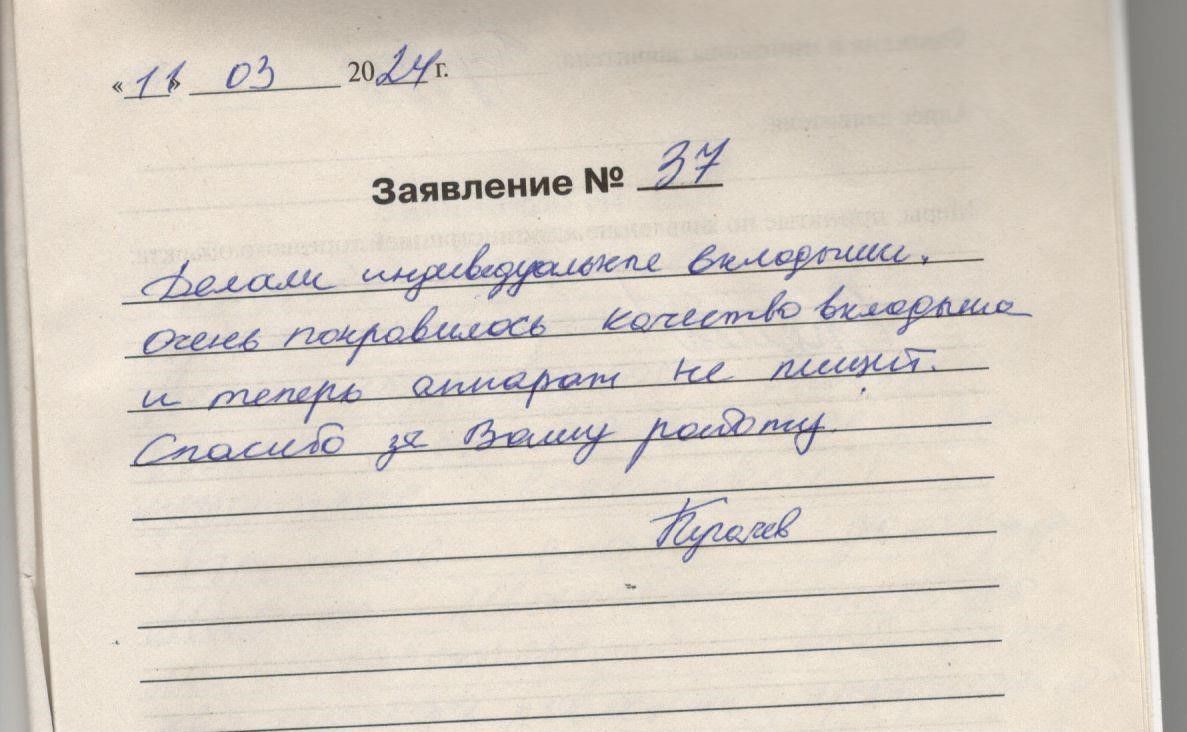 «11» 03 2024 г.
Заявление № 37
Делали индивидуальные вкладыши.
очень понравилось качество вкладыша
и теперь аппарат не пищит.
Спасибо за Вашу работу.
Пугачев